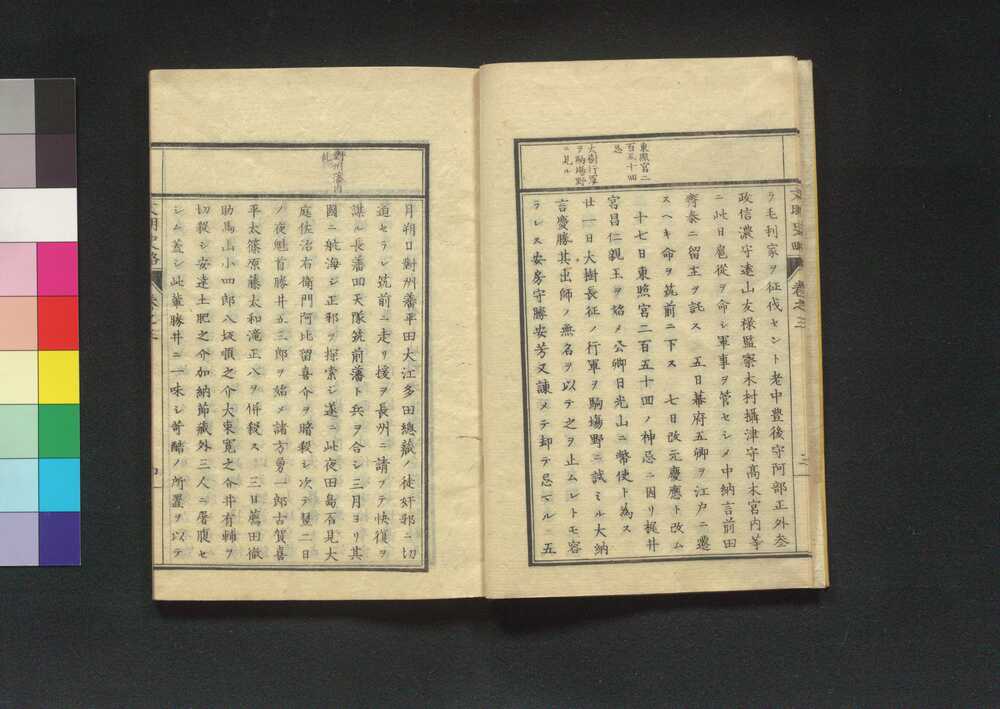 文明史略
卷之三
東照宮二
百五十回
忌
大樹行軍
ヲ駒塲野
ニ見ル
ラ毛利家ヲ征伐セント老中豊後守阿部正外参
政信濃守遠山友禄監察木村攝津守高木宮内等
ニ此日扈從ヲ命シ軍事ヲ管セシメ中納言前田
齊泰ニ留主ヲ託ス　五日幕府五卿ヲ江戸ニ遷
スヘキ命ヲ筑前ニ下ス　七日改元慶應ト改ム
十七日東照宮二百五十回ノ神忌ニ因リ梶井
宮昌仁親王ヲ始メ公卿日光山ニ幣使ト為ス
廿一日大樹長征ノ行軍ヲ駒塲野ニ試ミル大納
言慶勝其出師ノ無名ヲ以テ之ヲ止ムレトモ容
ラレス安房守勝安芳又諌メテ却テ忌マル　五
對州藩内
乱
月朔日對州藩平田大江多田總藏ノ徒奸邪ニ切
道セラレ筑前ニ走リ援ヲ長州ニ請フテ快復ヲ
謀ル長藩四天隊筑前藩ト兵ヲ合シ三月ヨリ其
國ニ航海シ正邪ヲ探索シ遂ニ此夜田島石見大
庭佐治右衛門阿比留喜介ヲ暗殺シ次テ翌二日
ノ夜魁首勝井五三郎ヲ始メ諸方勇一郎古賀喜
平太篠原藤太和滝正八ヲ併殺ス　三日薦田徹
助馬山小四郎八坂順之介大東寛之介井有輔ヲ
切殺シ安達土肥之介加納節藏外三人ニ屠腹セ
シム蓋シ此輩勝井ニ一味シ苛酷ノ所置ヲ以テ